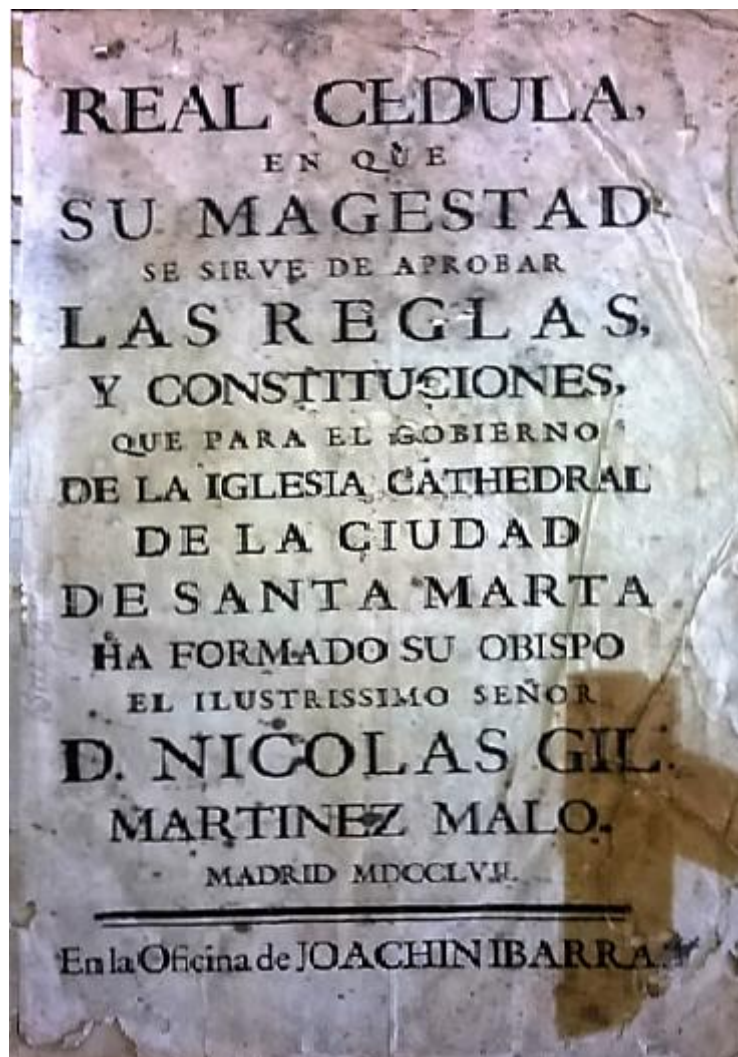 REAL CEDULA,
EN QUE
SU MAGESTAD
SE SIRVE DE APROBAR
LAS REGLAS,
Y CONSTITUCIONES,
QUE PARA EL GOBIERNO
DE LA IGLESIA CATHEDRAL
DE LA CIUDAD
DE SANTA MARTA
HA FORMADO SU OBISPO
EL ILUSTRISSIMO SEÑOR
D. NICOLAS GIL
MARTINEZ MALO.
MADRID MDCCLVII.
En la Oficina de JOACHIN IBARRA.